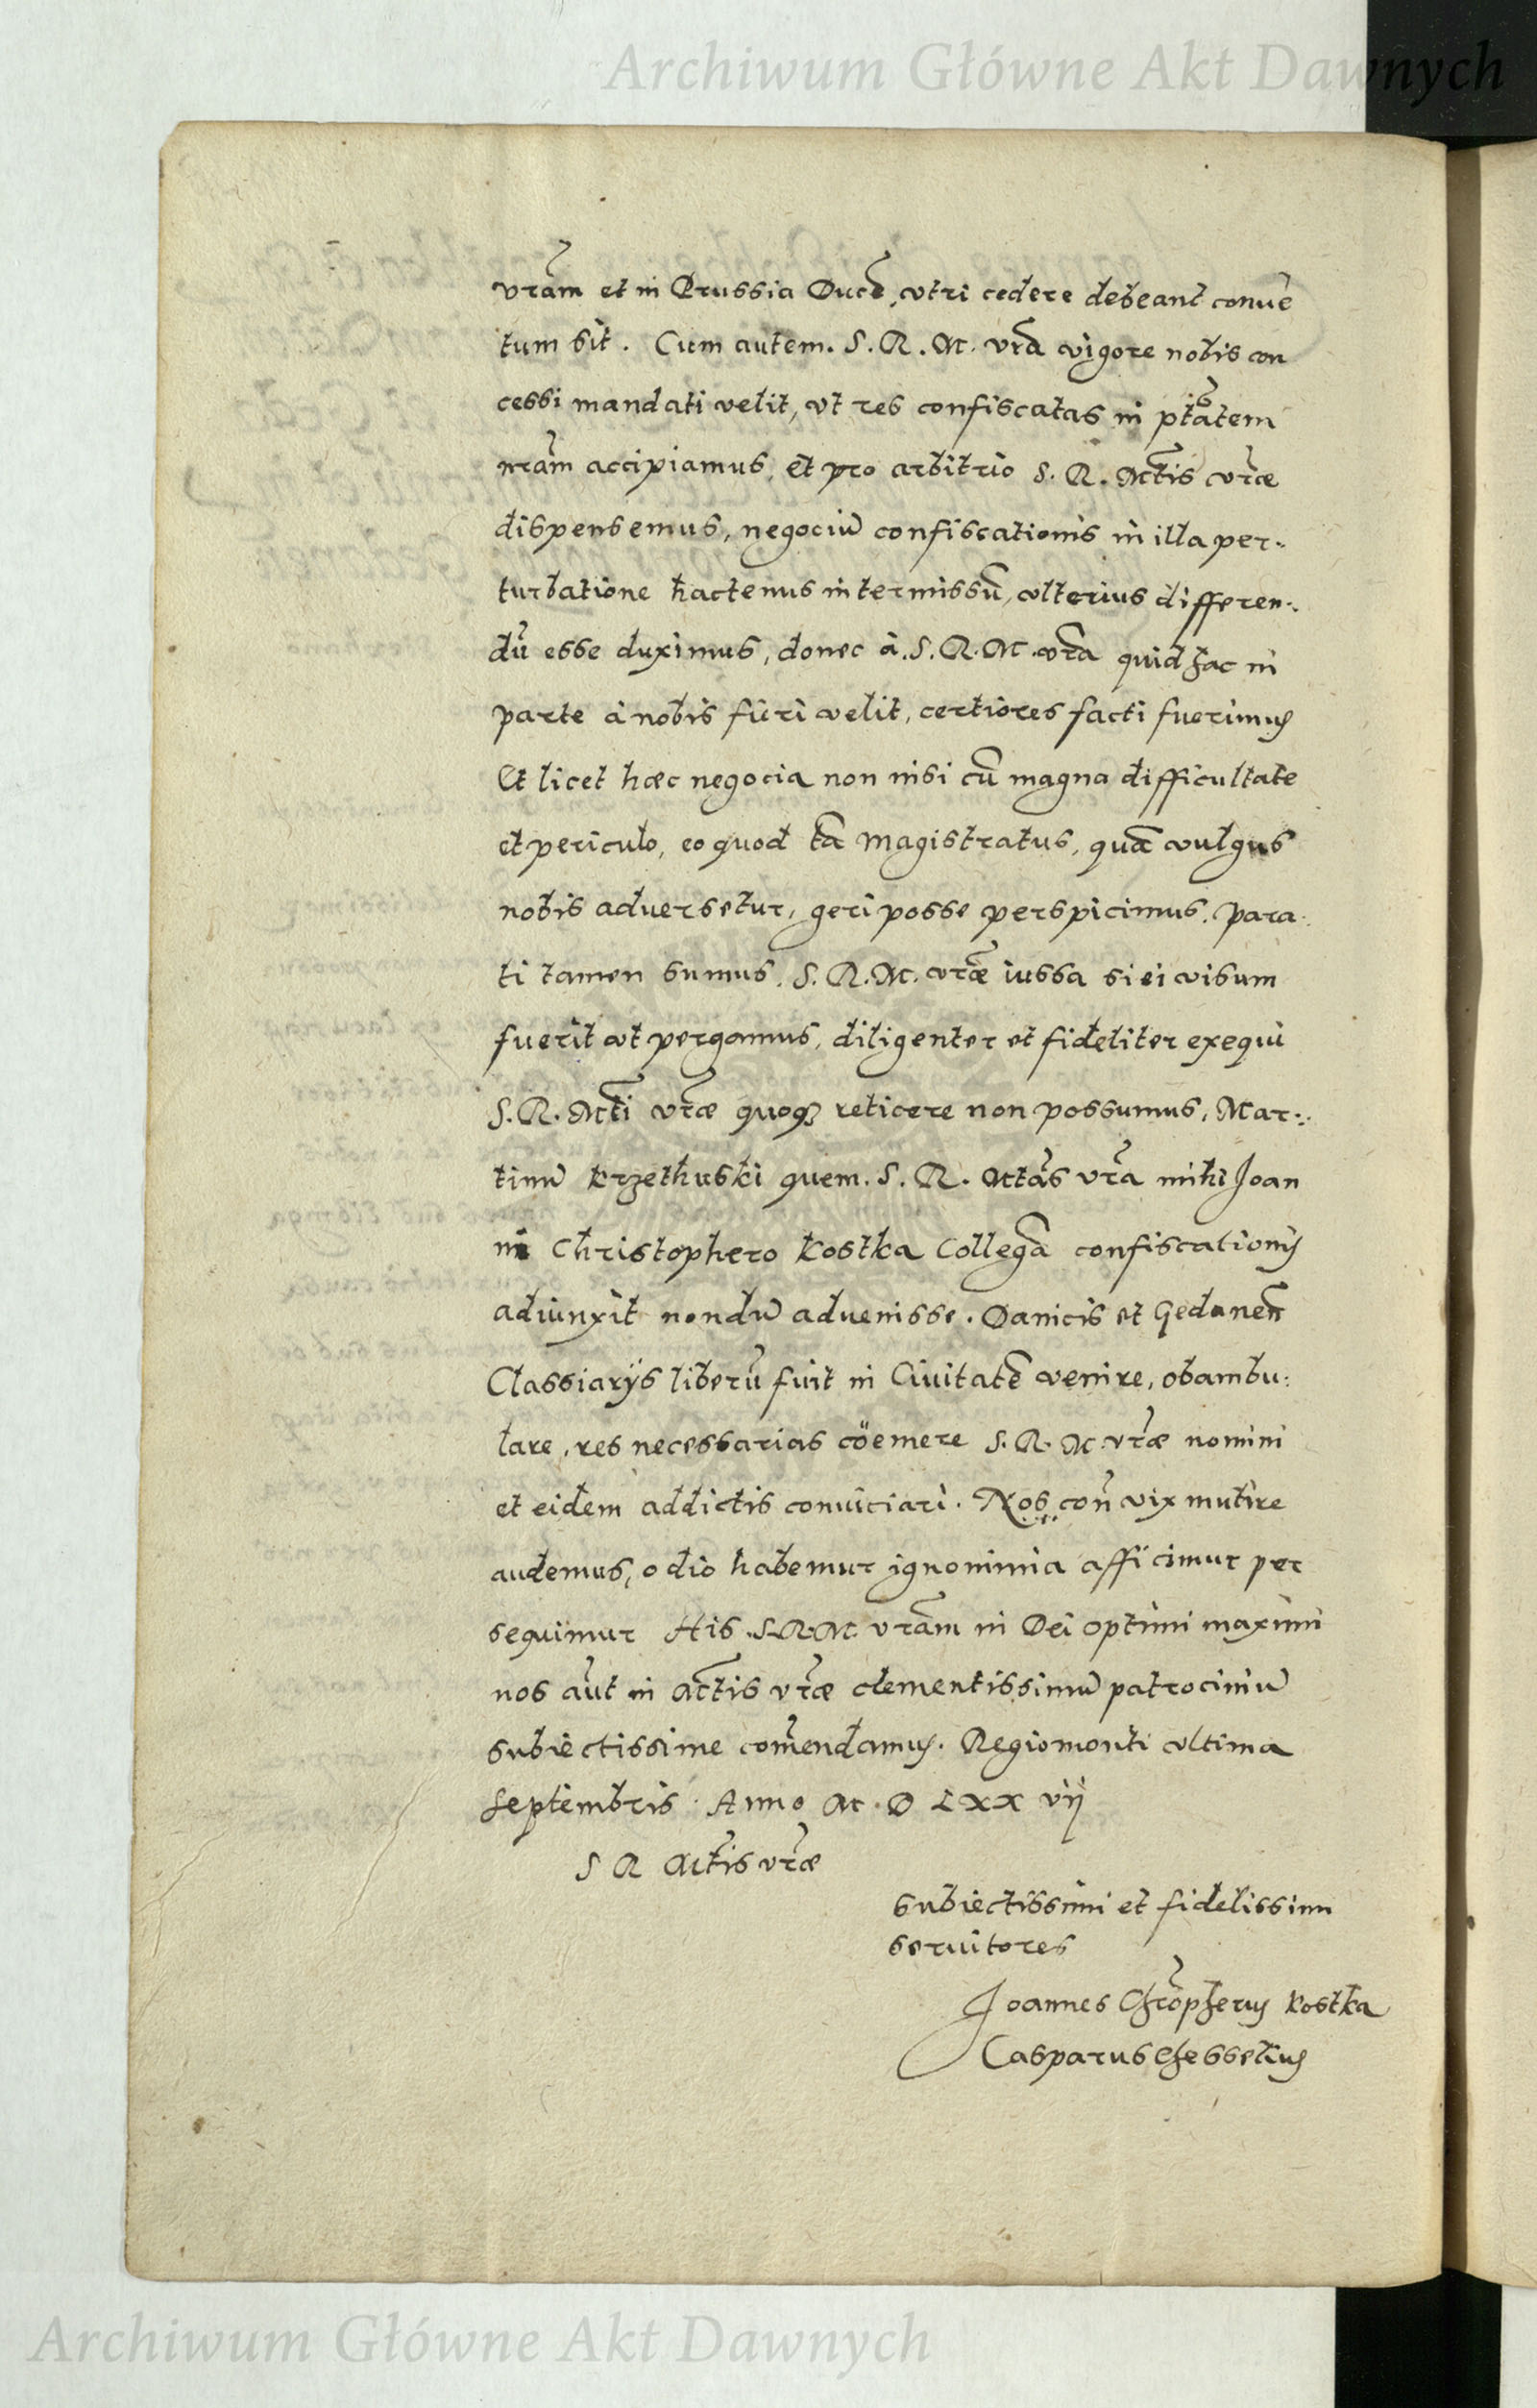 Archiwum Główne Akt Dawnych
vram et in Prussia Ducē, vtri cedere debeant conuē
tum sit. Cum autem. S. R. M. vra vigore nobis con
cessi mandati velit, vt res confiscatas in ptātem
nram accipiamus, et pro arbitrio S. R. Mtis vrae
dispensemus, negociū confiscationis in illa per:
turbatione hactenus intermissū, vlterius differen:
dū esse duximus, donec à. S. R. M. vra quid hac in
parte à nobis fieri velit, certiores facti fuerimus
Et licet haec negocia non nisi cū magna difficultate
et periculo, eo quod tā Magistratus, quā vulgus
nobis aduersetur, geri posse perspicimus. Para:
ti tamen sumus. S. R. M. vrae iussa si ei visum
fuerit vt pergamus, diligenter et fideliter exequi
S. R. Mti vrae quoq3 reticere non possumus, Mar:
tinū Krzethuski quem. S. R. Mtas vra mihi Joan
ni Christophero Kostka Collegā confiscationis
adiunxit nondū aduenisse. Danicis et Gedanen
Classiarijs liberū fuit in Ciuitatē venire, obambu:
lare, res necessarias cöemere S. R. M. vrae nomini
et eidem addictis conuiciari. Nos con vix mutire
audemus, odio habemur ignominia afficimur per
sequimur His S. R. M. vram in Dei optimi maximi
nos aut in Mtis vrae clementissimū patrociniū
subiectissime comendamus. Regiomonti vltima
Septembris. Anno M. D LXX vij
S R Mtis vrae
subiectissimi et fidelissimi
seruitores
Joannes Chropherus Kostka
Casparus Gesselius
Archiwum Główne Akt Dawnych